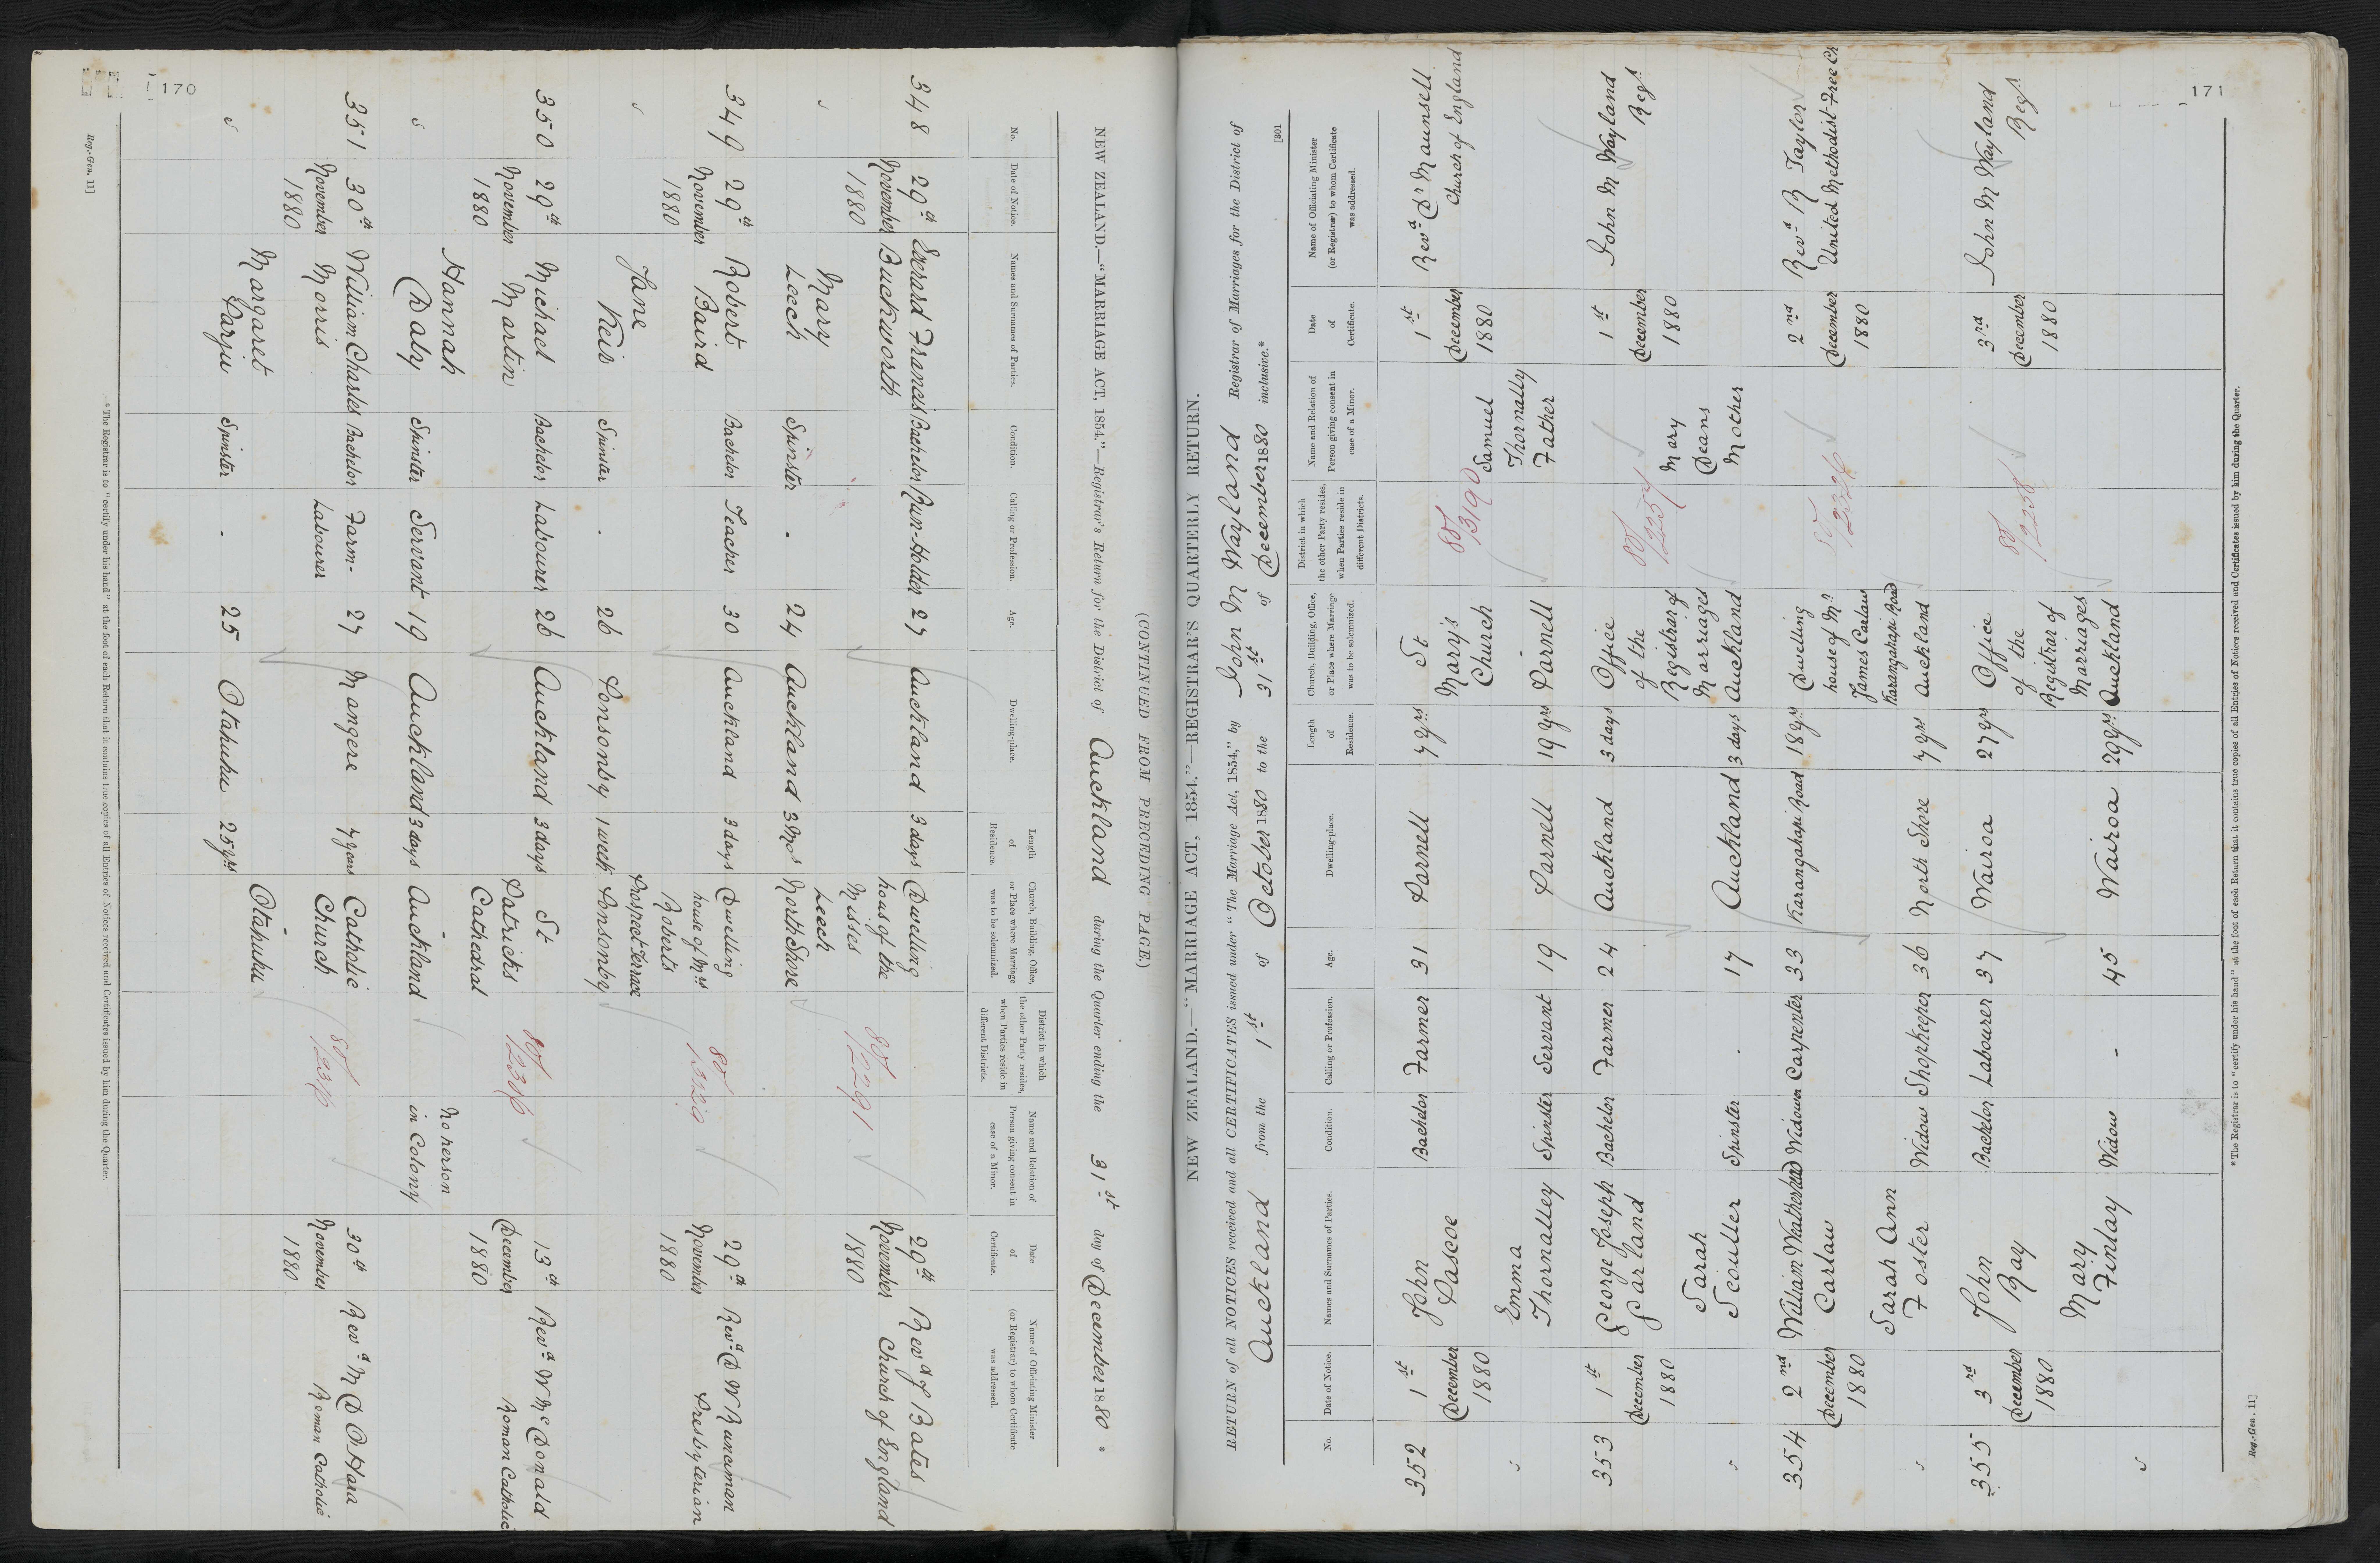 170
NEW ZEALAND.—"MARRIAGE ACT, 1854."—Registrar's Return for the District of Auckland during the Quarter ending the 31st day of December 1880 *
(CONTINUED FROM PRECEDING PAGE.)
No.
Date of Notice.
Names and Surnames of Parties.
Condition.
Calling or Profession.
Age.
Dwelling-place.
Length of Residence.
Church, Building, Office, or Place where Marriage was to be solemnized.
District in which the other Party resides, when Parties reside in different Districts.
Name and Relation of Person giving consent in case of a Minor.
Date of Certificate.
Name of Officiating Minister (or Registrar) to whom Certificate was addressed.
348 29th November 1880
Everard Francis Buckworth Bachelor Run-Holder 27 Auckland 3 days
Mary Leech Spinster - 24 Auckland 3 Mos
Dwelling house of the Misses Leech North Shore
80/2291
29th November 1880
Revd J Bates Church of England
349 29th November 1880
Robert Baird Bachelor Teacher 30 Auckland 3 days
Jane Keir Spinster - 26 Ponsonby 1 week
Dwelling house of Mrs Roberts Prospect Terrace Ponsonby
80/1329
29th November 1880
Revd D W Runciman Presbyterian
350 29th November 1880
Michael Martin Bachelor Labourer 26 Auckland 3 days
Hannah Daly Spinster Servant 19 Auckland 3 days
St Patricks Cathedral Auckland
80/2316
No person in Colony
13th December 1880
Revd W McDonald Roman Catholic
351 30th November 1880
William Charles Morris Bachelor Farm-Labourer 27 Mangere 7 years
Margaret Spinster - 25 Otahuhu 25 yrs
Catholic Church Otahuhu
30th November 1880
Revd M D O.Hara Roman Catholic
* The Registrar is to "certify under his hand" at the foot of each Return that it contains true copies of all Entries of Notices received and Certificates issued by him during the Quarter.
Reg.-Gen. 11]
171
[301
NEW ZEALAND.—"MARRIAGE ACT, 1854."—REGISTRAR'S QUARTERLY RETURN.
RETURN of all NOTICES received and all CERTIFICATES issued under "The Marriage Act, 1854," by John M Wayland Registrar of Marriages for the District of
Auckland from the 1st of October 1880 to the 31st of December 1880 inclusive.*
No.
Date of Notice.
Names and Surnames of Parties.
Condition.
Calling or Profession.
Age.
Dwelling-place.
Length of Residence.
Church, Building, Office, or Place where Marriage was to be solemnized.
District in which the other Party resides, when Parties reside in different Districts.
Name and Relation of Person giving consent in case of a Minor.
Date of Certificate.
Name of Officiating Minister (or Registrar) to whom Certificate was addressed.
352 1st December 1880
John Pascoe Bachelor Farmer 31 Parnell 7 yrs
Emma Thornalley Spinster Servant 19 Parnell 19 yrs
St Mary's Church Parnell
80/3190
Samuel Thornally Father
1st December 1880
Revd Dr Maunsell Church of England
353 1st December 1880
George Joseph Garland Bachelor Farmer 24 Auckland 3 days
Sarah Scouller Spinster - 17 Auckland 3 days
Office of the Registrar of Marriages Auckland
80/2257
Mary Deans Mother
1st December 1880
John M Wayland Regr
354 2nd December 1880
William Carlaw Widower Carpenter 33 Karangahapi Road 18 yrs
Sarah Ann Foster Widow Shopkeeper 36 North Shore 7 yrs
Dwelling house of Mr James Carlaw Karangahapi Road Auckland
2nd December 1880
Revd R Taylor United Methodist Free Ch
355 3rd December 1880
John Ray Bachelor Labourer 37 Wairoa 27 yrs
Mary Finlay Widow - 45 Wairoa 29 yrs
Office of the Registrar of Marriages Auckland
80/2258
3rd December 1880
John M Wayland Regr
* The Registrar is to "certify under his hand" at the foot of each Return that it contains true copies of all Entries of Notices received and Certificates issued by him during the Quarter.
Reg.-Gen. 11]